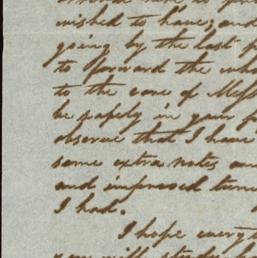 wished to have; and
going by the last p
to forward the who
to the care of Mess
be safely in your p
observe that I have
some extra notes an
and improved tune
I had.
I hope every t